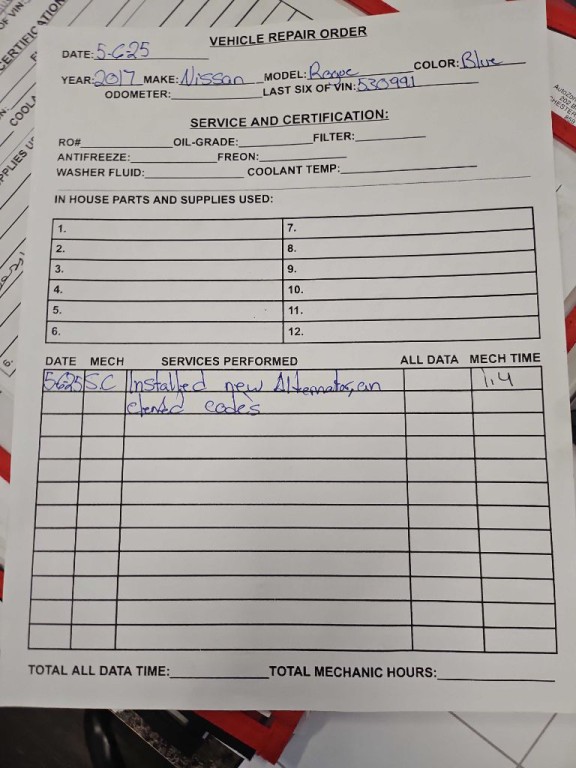 VEHICLE REPAIR ORDER
DATE: 5-6-25
YEAR: 2017 MAKE: Nissan MODEL: Rogue COLOR: Blue
ODOMETER: LAST SIX OF VIN: 530991
SERVICE AND CERTIFICATION:
RO# OIL-GRADE: FILTER:
ANTIFREEZE: FREON:
WASHER FLUID: COOLANT TEMP:
IN HOUSE PARTS AND SUPPLIES USED:
1. 7.
2. 8.
3. 9.
4. 10.
5. 11.
6. 12.
DATE MECH SERVICES PERFORMED ALL DATA MECH TIME
5625 SC Installed new Alternator, an 1.4
codes
TOTAL ALL DATA TIME: TOTAL MECHANIC HOURS: